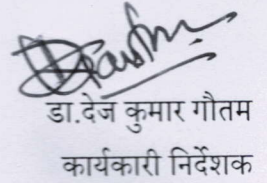 डा.देज कुमार गौतम
कार्यकारी निर्देशक